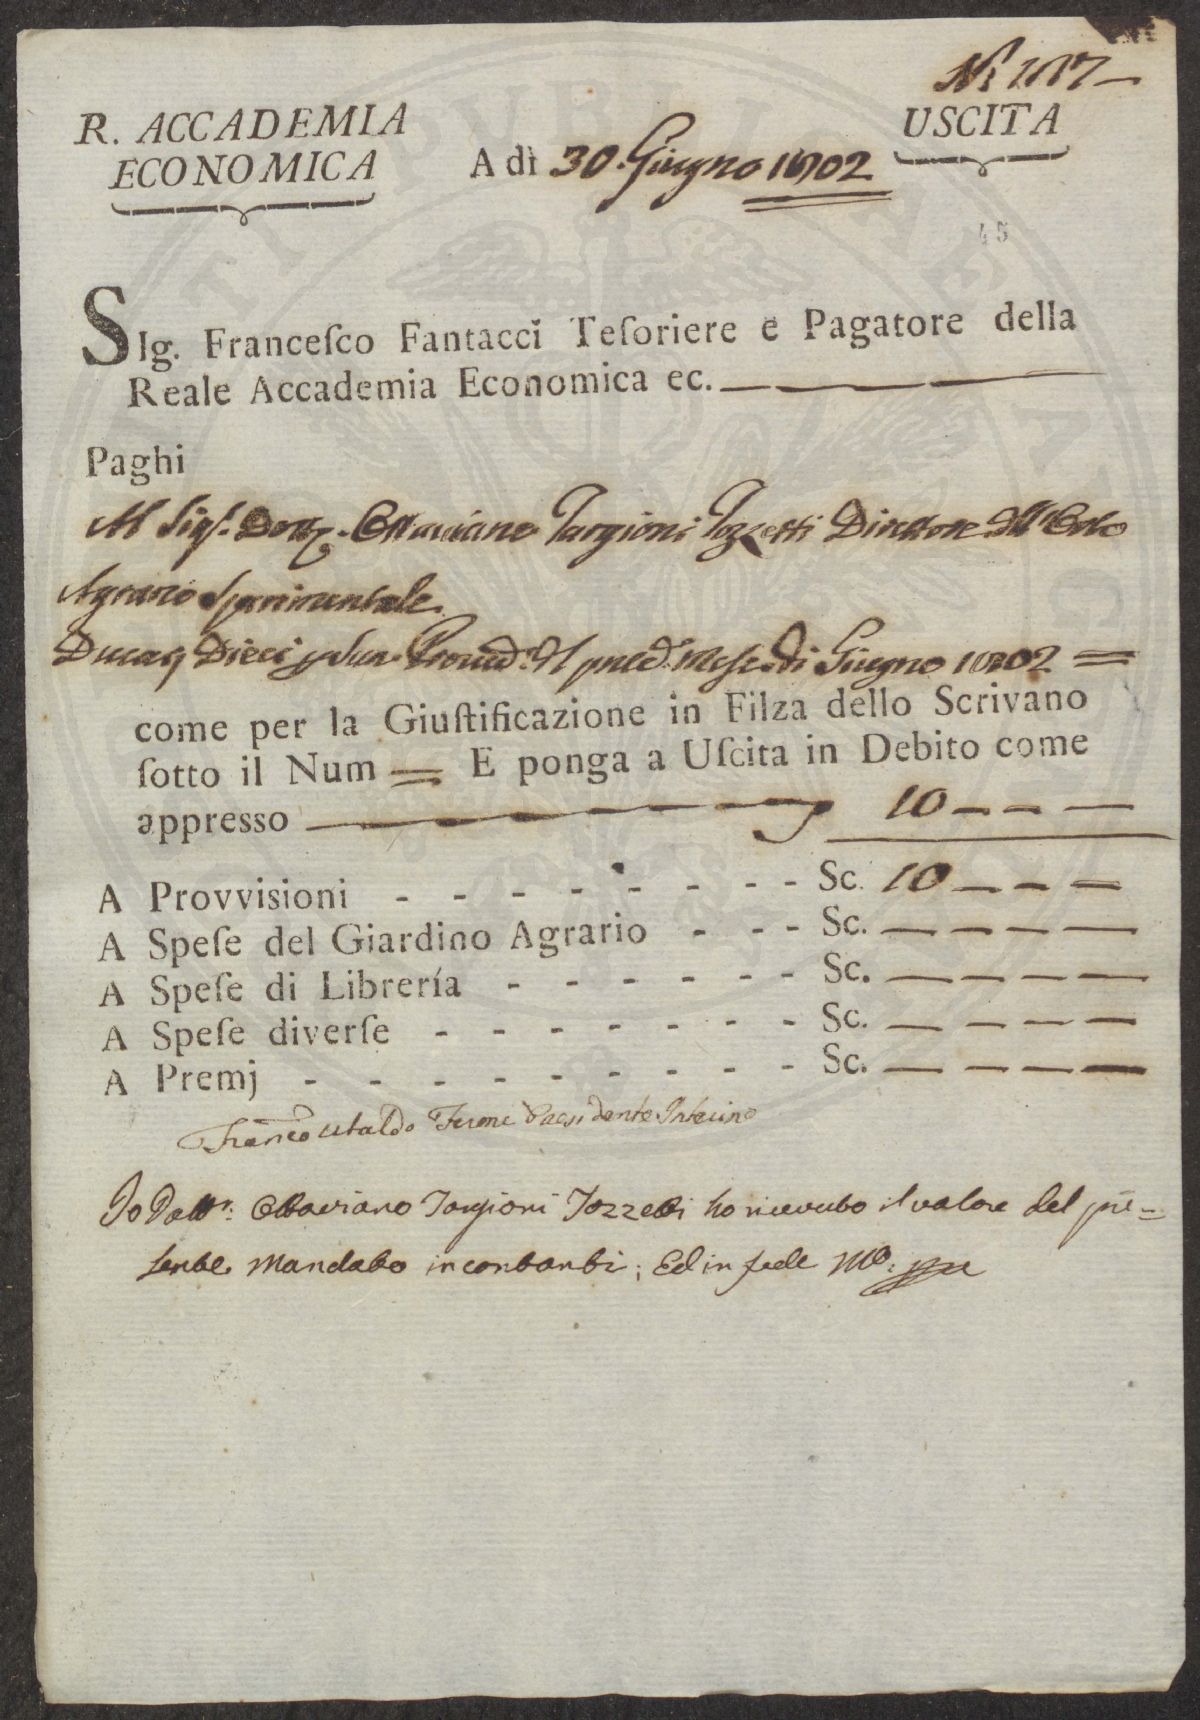 USCITA
R. ACCADEMIA
ECONOMICA
A dì 30. Giugno 1802
45
SIg. Franceſco Fantacci Teſoriere e Pagatore della
Reale Accademia Economica ec.
Paghi
Al Sigr. Dottr. Ottaviano Targioni Tozzetti Direttore dell'Orto
Agrario Sperimentale
Ducati Dieci Sua Provvd. del pred. Mese di Giugno 1802 =
come per la Giuſtificazione in Filza dello Scrivano
ſotto il Num = E ponga a Uſcita in Debito come
appresso 10
A Provvisioni - - - - - - - - Sc. 10
A Speſe del Giardino Agrario - - - Sc.
A Speſe di Librería - - - - - - Sc.
A Speſe diverſe - - - - - - - Sc.
A Premj - - - - - - - - - Sc.
Franco Ubaldo Feroni Presidente Interino
Io Dottr. Ottaviano Targioni Tozzetti ho ricevuto il valore del pre=
sente Mandato in contanti; Ed in fede Mo. ppa